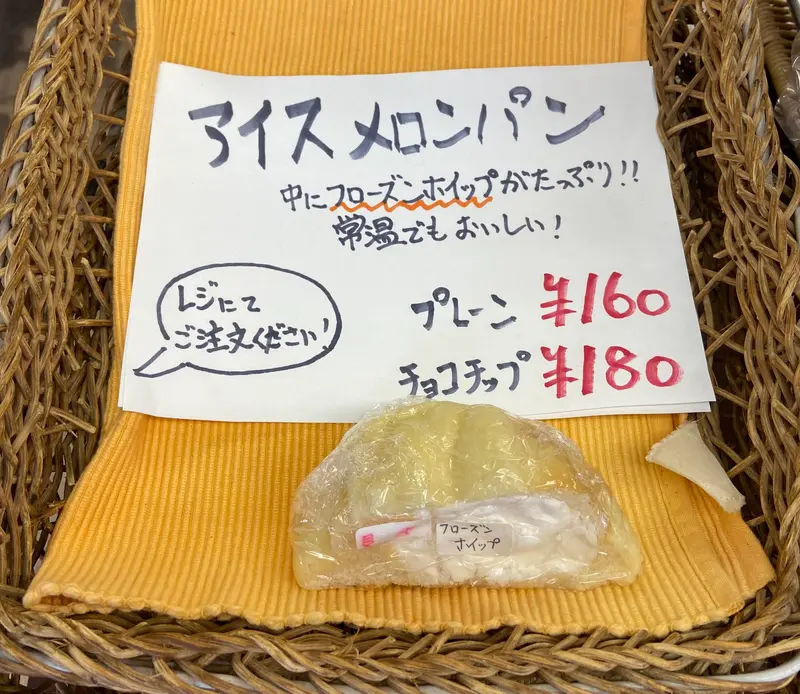 アイスメロンパン
中にフローズンホイップがたっぷり!!
常温でもおいしい!
レジにて
ご注文ください!
プレーン ¥160
チョコチップ ¥180
フローズン
ホイップ